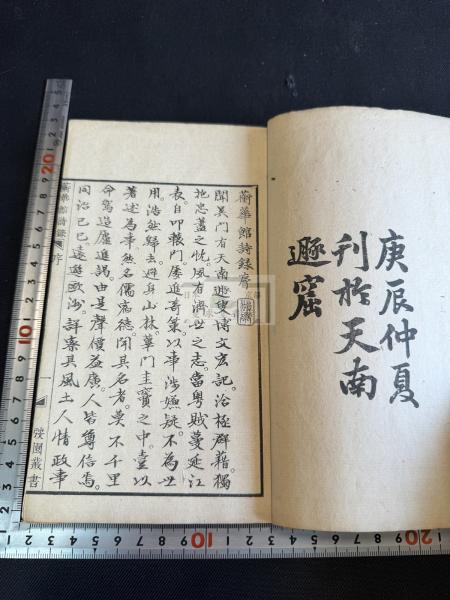 庚辰仲夏
刊於天南
遯窟
蘅華館詩錄序
聞吳門有天南遯叟博文宏記洽極群籍獨
抱忠藎之忱夙有濟世之志當粵賊蔓延江
表自叩轅門屢進奇策以事涉嫌疑不為世
用浩然歸去避身山林蓽門圭竇之中壹以
著述為事然名儒碩德聞其名者莫不千里
命駕造廬進謁由是聲價益廣人皆尊信焉
同治己巳遠遊歐洲詳察其風土人情政事
蘅華館詩錄
序
一
弢園叢書
10
20
10
20